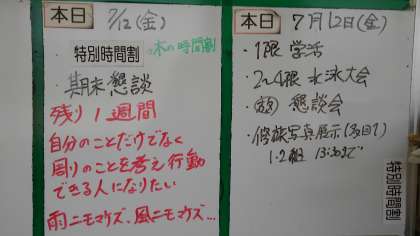 本日 7/12(金)
特別時間割
木の時間割
期末懇談
残り1週間
自分のことだけでなく
周りのことを考え行動
できる人になりたい
雨ニモマケズ、風ニモマケズ…
本日 7月12日(金)
・1限 学活
・2~4限 水泳大会
・放 懇談会
・修旅写真展示(3日目)
1・2組 13:30まで
特別時間割